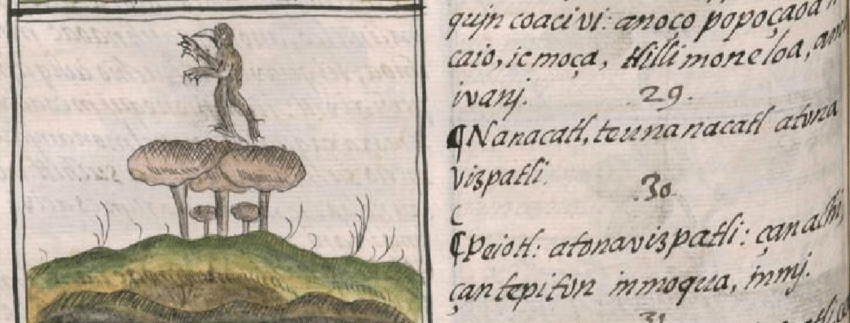 qujn coacivi: anoço popoçaoa
caio, ic moça, Hilli moneloa,
ivanj.
29.
¶Nanacatl, teunanacatl atona
vizpatli.
.30.
¶Peiotl: atonavizpatli: çan achi,
çantepiton inmoqua, inmj.
31